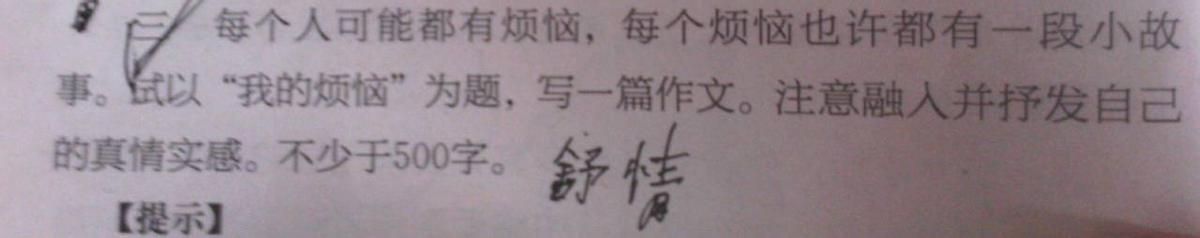 三 每个人可能都有烦恼，每个烦恼也许都有一段小故
事。试以“我的烦恼”为题，写一篇作文。注意融入并抒发自己
的真情实感。不少于500字。 舒情
【提示】